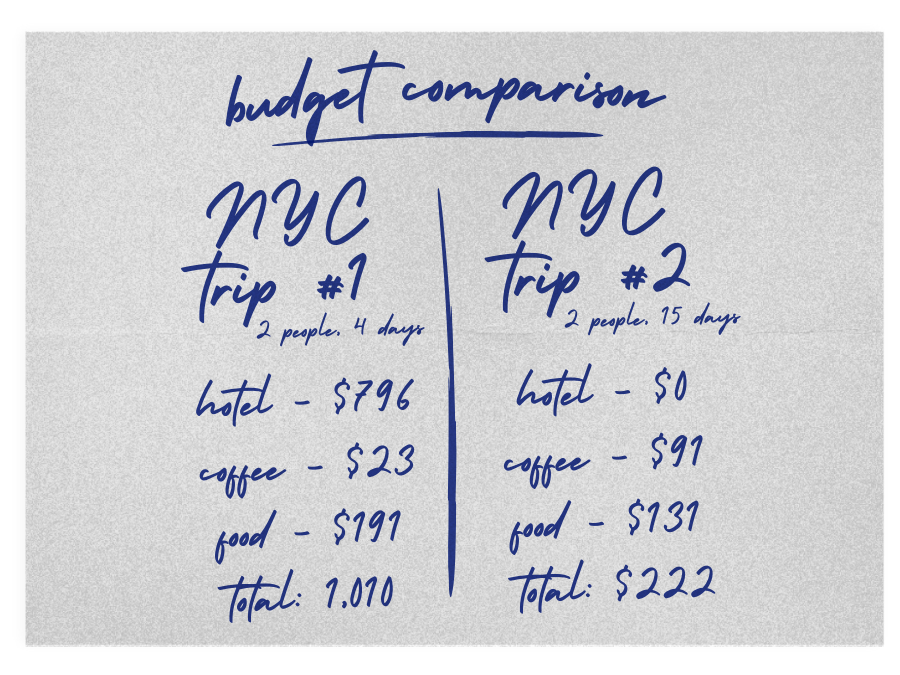 budget comparison
NYC
Trip #1
2 people. 4 days
hotel - $796
coffee - $23
food - $191
Total: 1.010
NYC
Trip #2
2 people. 15 days
hotel - $0
coffee - $91
food - $131
Total: $222